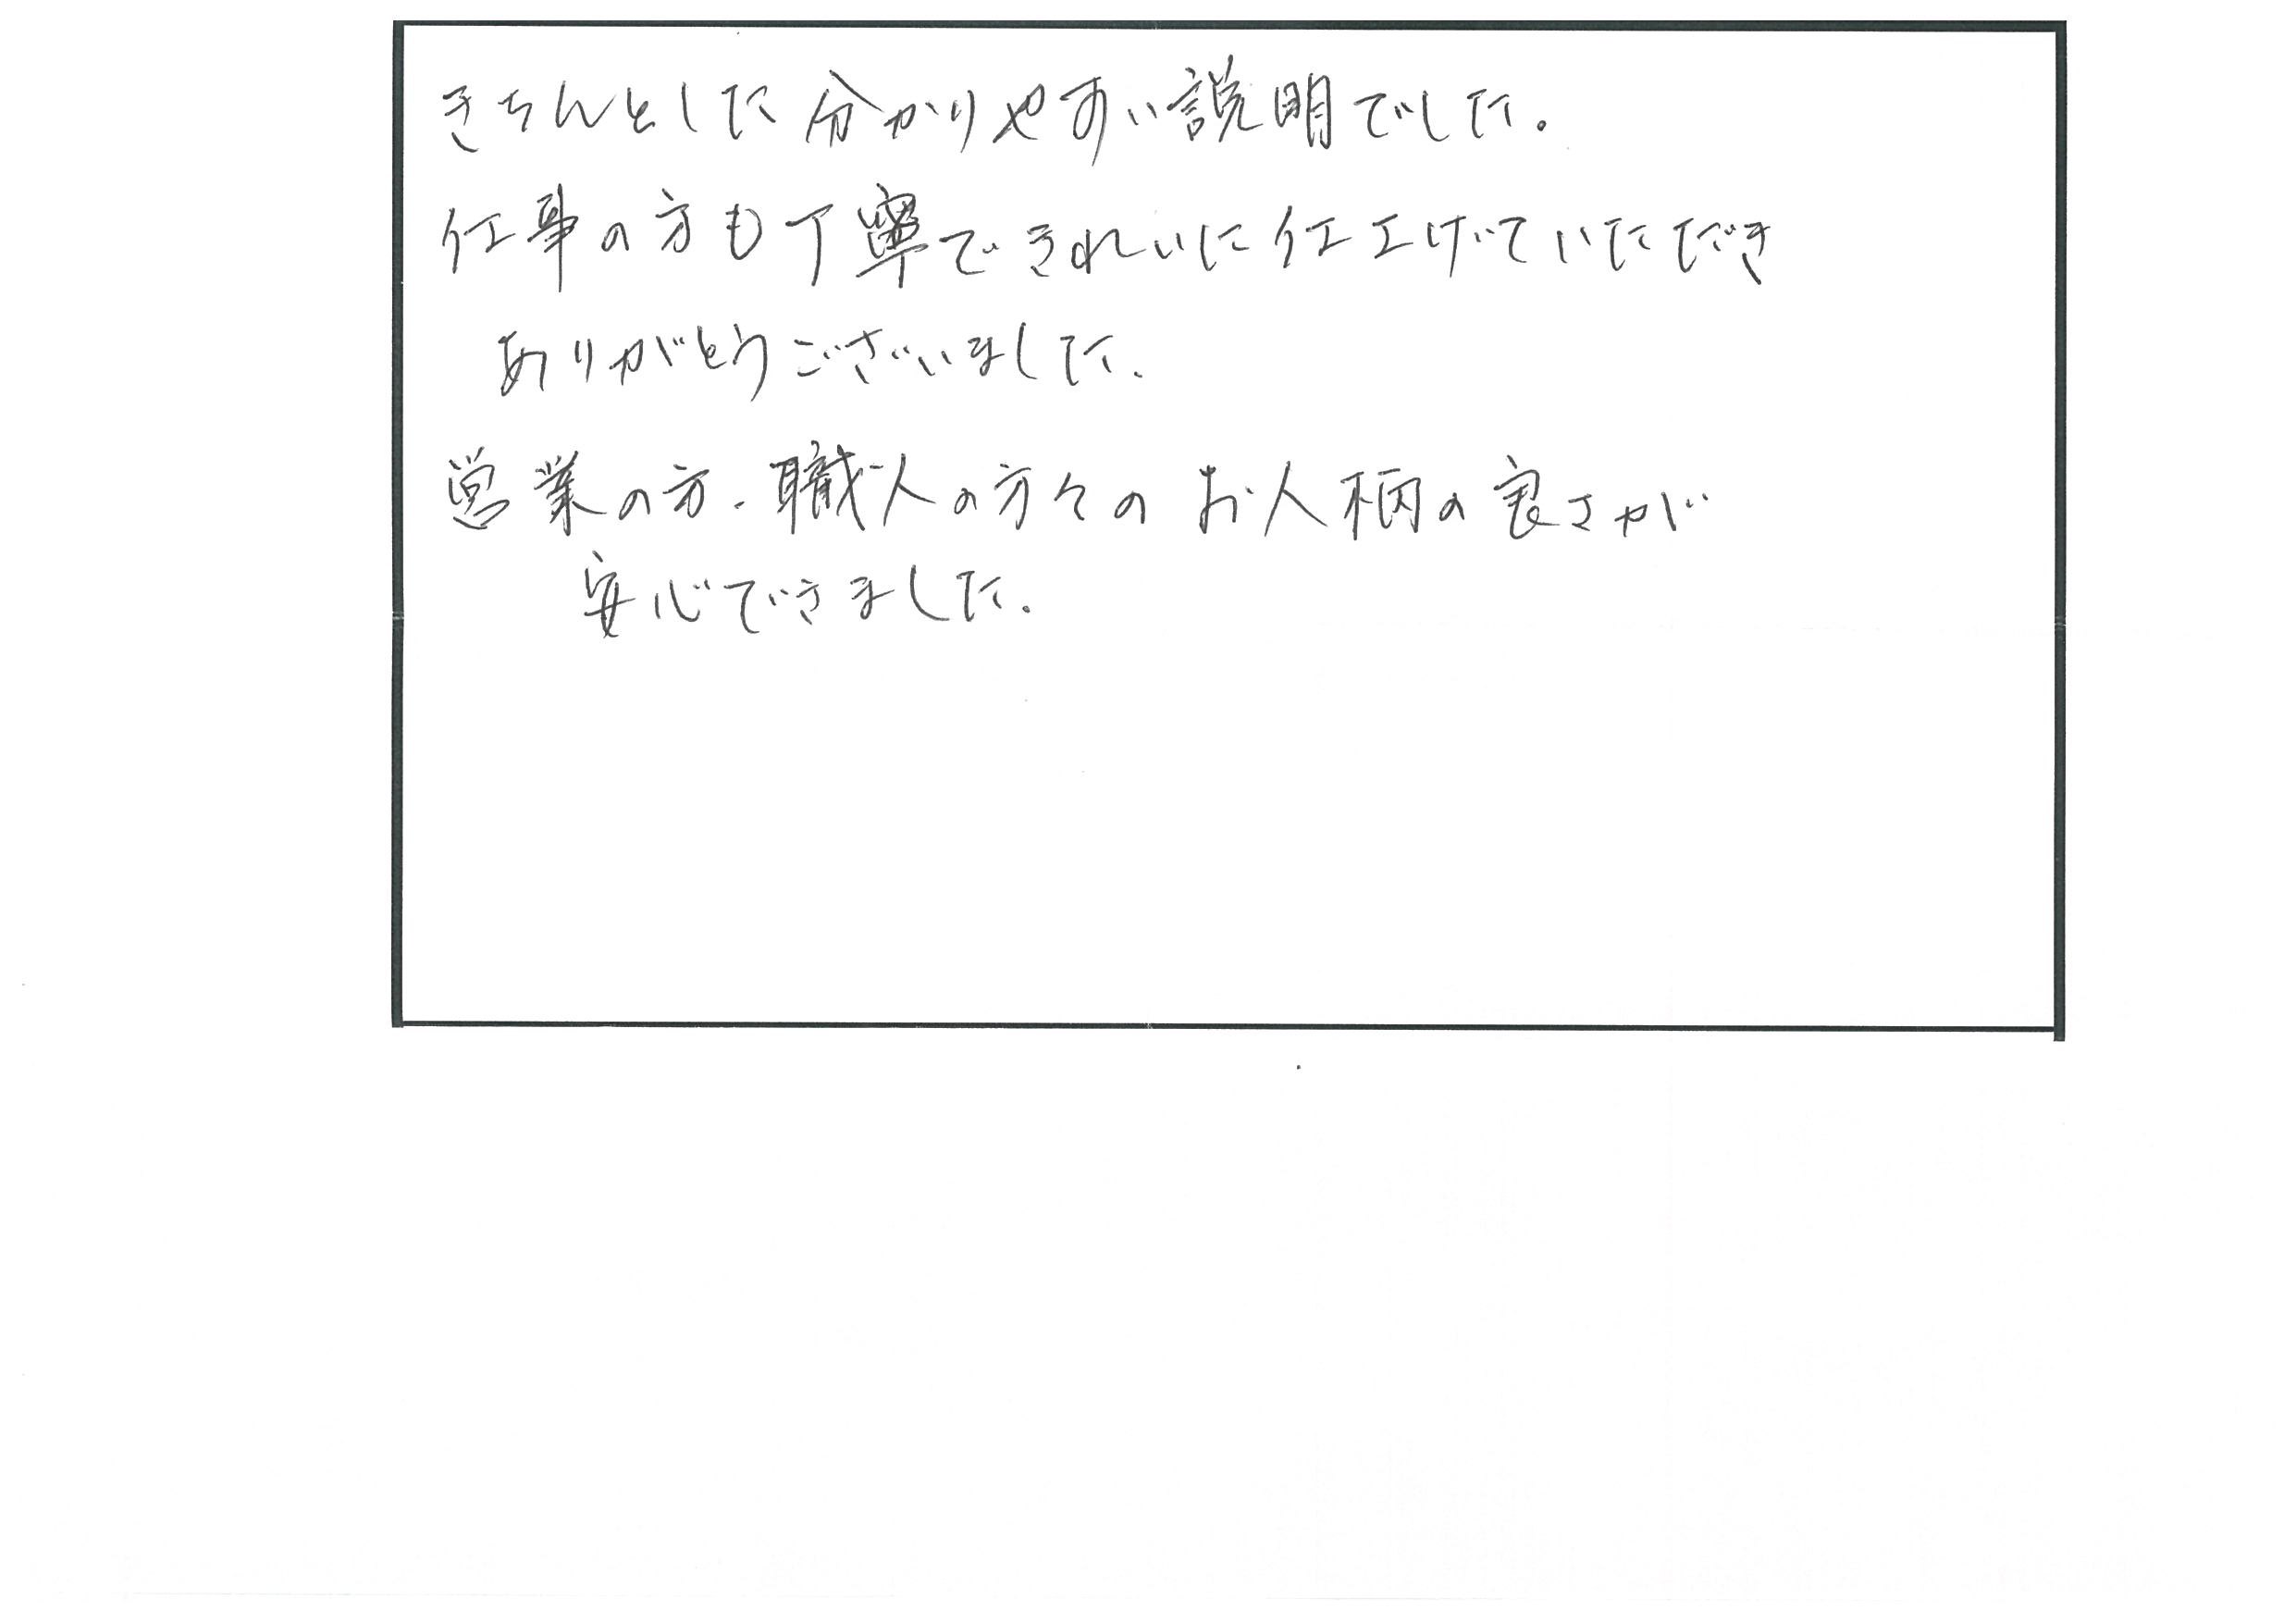 きちんとした分かりやすい説明でした。
仕事の方も丁寧できれいに仕上げていただき
ありがとうございました。
営業の方、職人の方々のお人柄の良さが
安心できました。